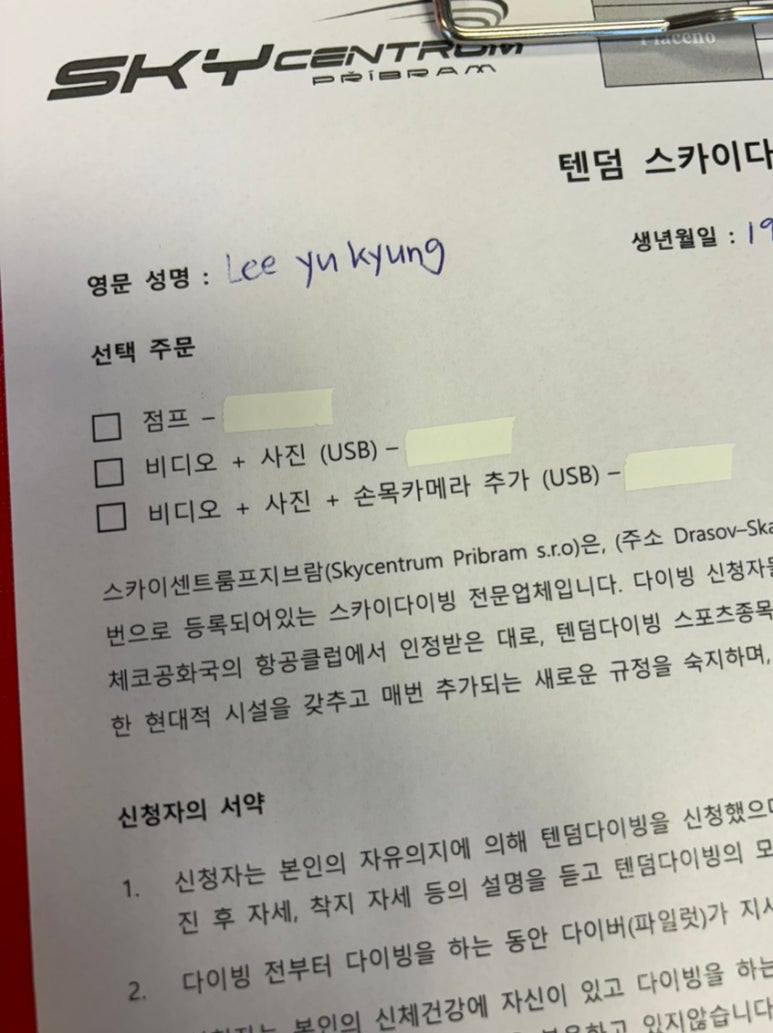 SKYCENTRUM
PŘÍBRAM
Placeno
텐덤 스카이다
영문 성명 : Lee yu kyung
생년월일 : 19
선택 주문
점프 –
비디오 + 사진 (USB) –
비디오 + 사진 + 손목카메라 추가 (USB) –
스카이센트룸프지브람(Skycentrum Pribram s.r.o)은, (주소 Drasov–Ska
번으로 등록되어있는 스카이다이빙 전문업체입니다. 다이빙 신청자들
체코공화국의 항공클럽에서 인정받은 대로, 텐덤다이빙 스포츠종목
한 현대적 시설을 갖추고 매번 추가되는 새로운 규정을 숙지하며,
신청자의 서약
1. 신청자는 본인의 자유의지에 의해 텐덤다이빙을 신청했으며
진 후 자세, 착지 자세 등의 설명을 듣고 텐덤다이빙의 모
2. 다이빙 전부터 다이빙을 하는 동안 다이버(파일럿)가 지시
본인의 신체건강에 자신이 있고 다이빙을 하는
있지않습니다